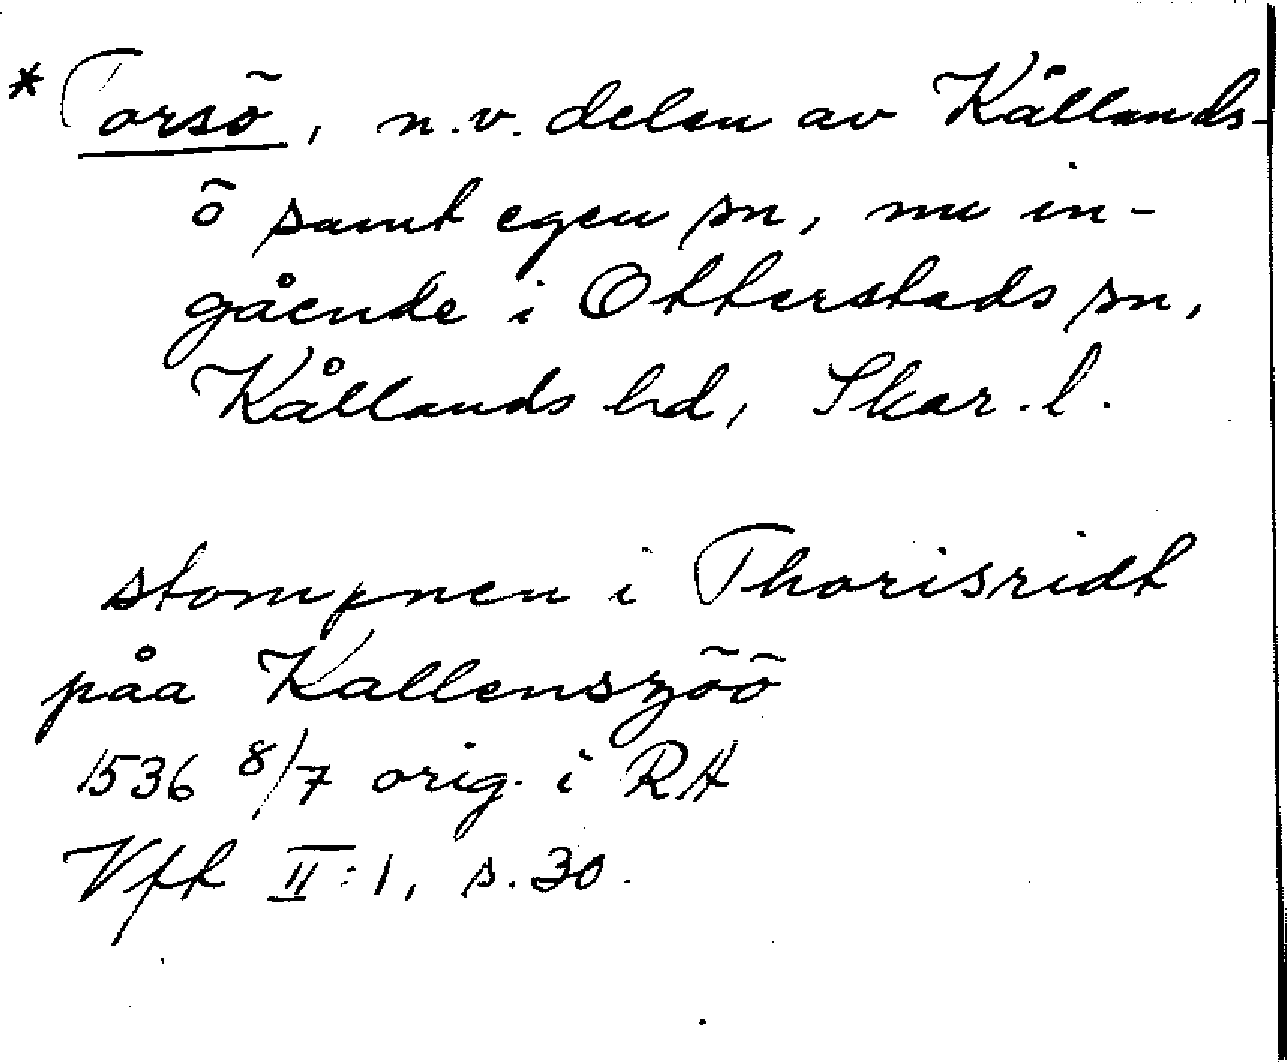 * Torsö, n.v. delen av Kållands-
ö samt egen sn, nu in-
gående i Otterstads sn,
Kållands hd, Skar. l.
stompnen i Thorisridt
påa Kallenszöö
1536 8/7 orig. i RA
Vft II:1, s. 30.